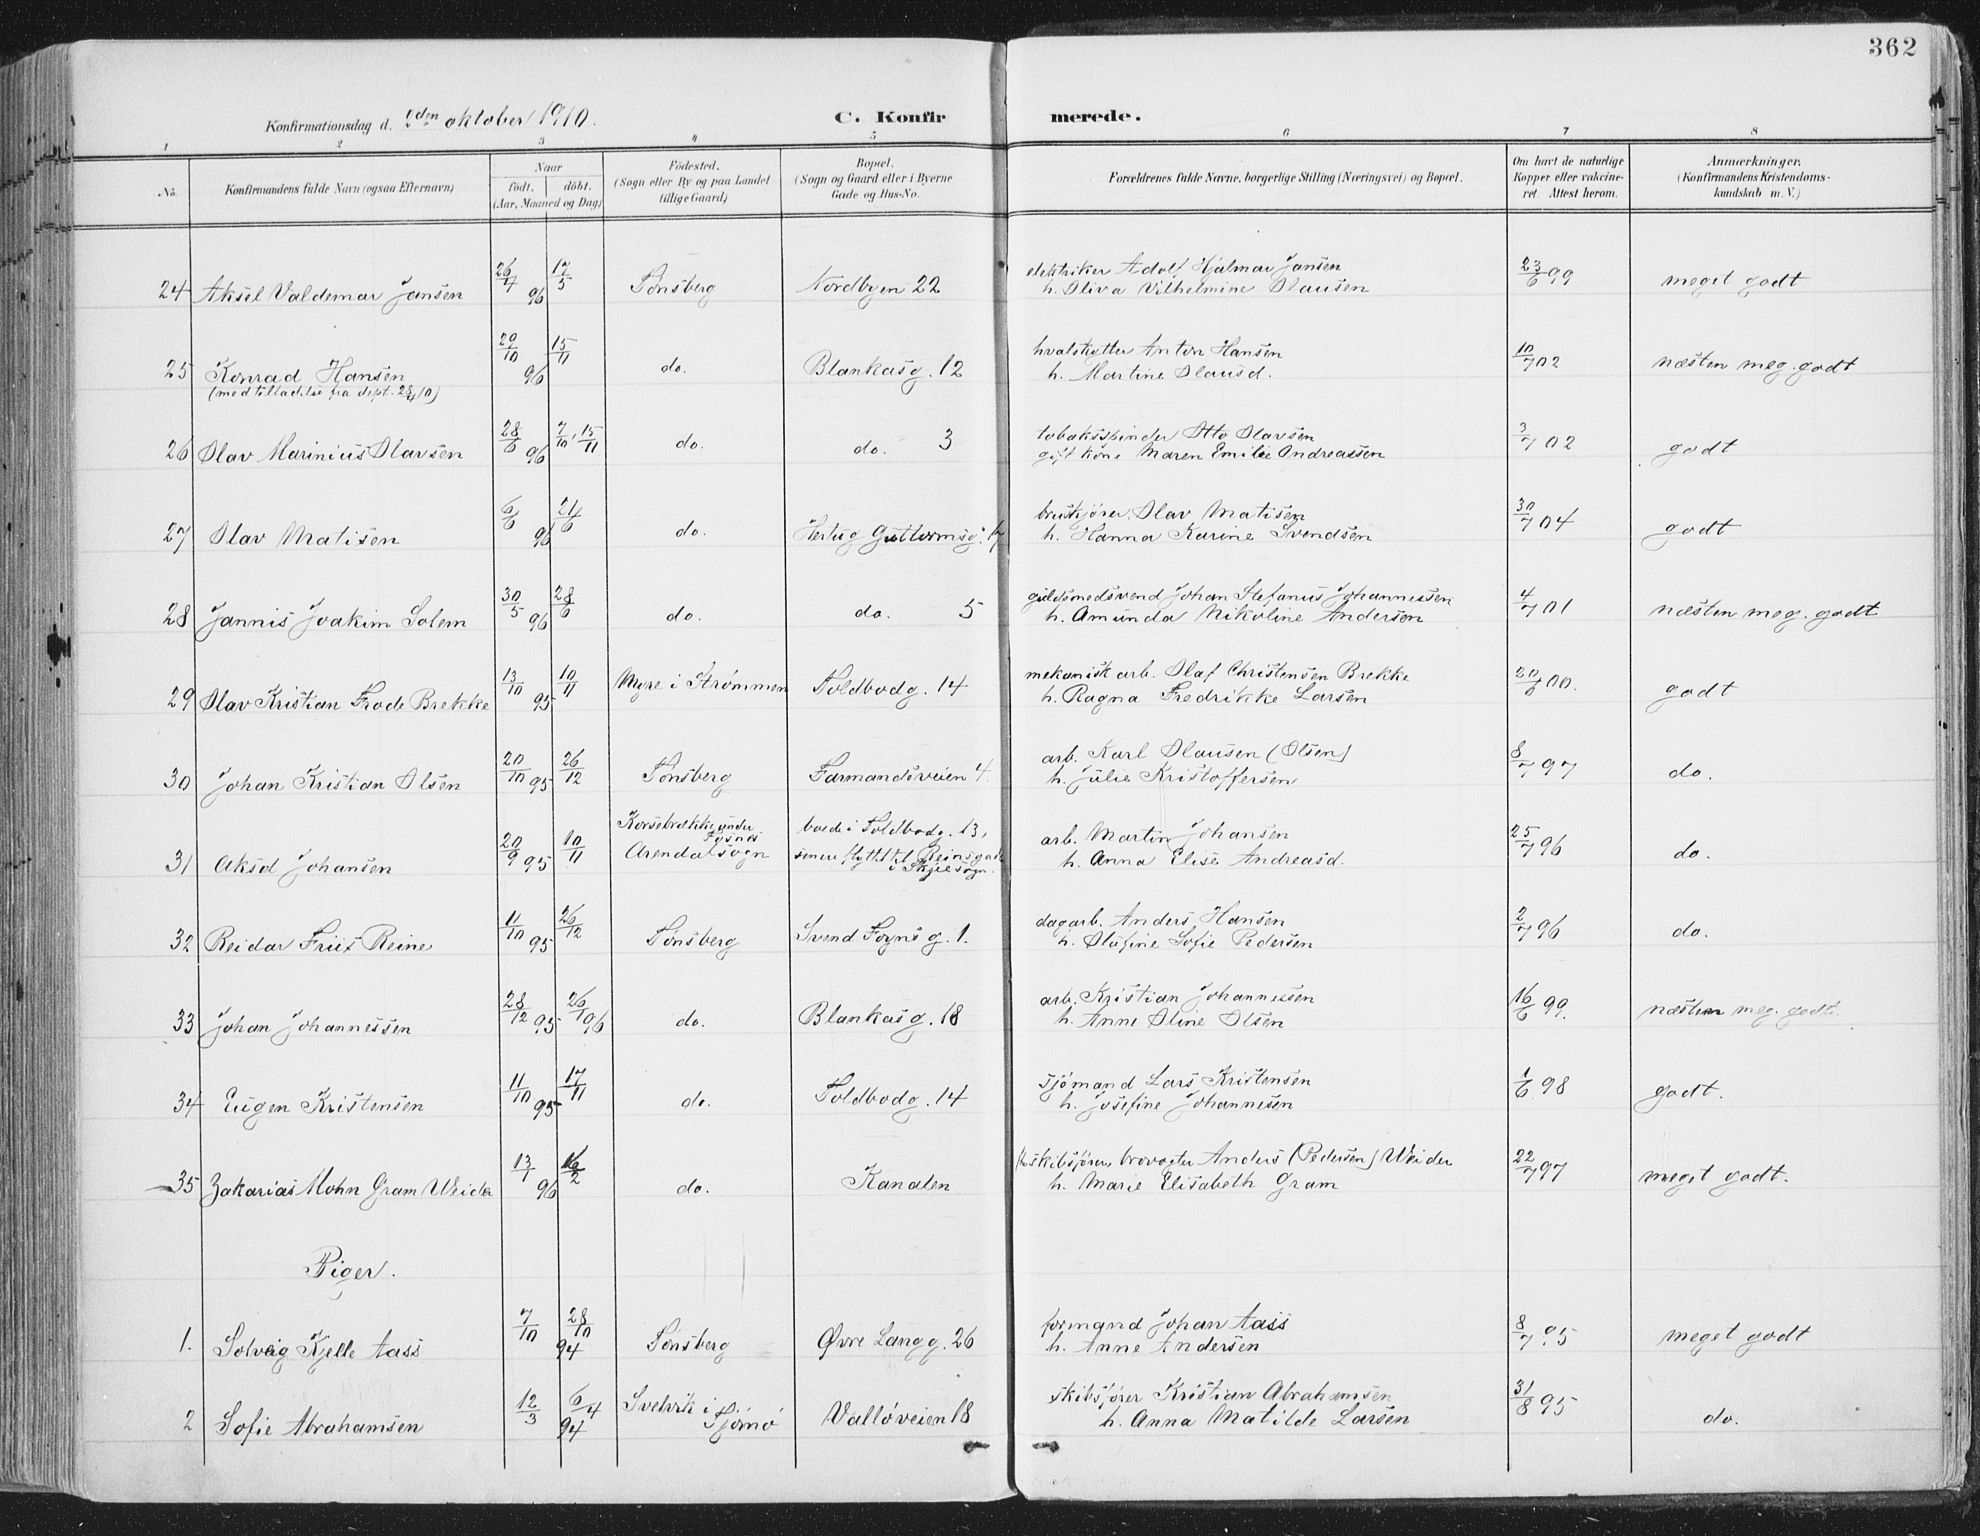 362
Konfirmationsdag d. 2den oktober 1910.
C. Konfirmerede.
1 2 3 4 5 6 7 8
No.
Konfirmandens fulde Navn (ogsaa Efternavn)
Naar
født. døbt.
(Aar, Maaned og Dag)
Fødested.
(Sogn eller By og paa Landet
tillige Gaard)
Bopæl.
(Sogn og Gaard eller i Byerne
Gade og Hus-No.
Forældrenes fulde Navne, borgerlige Stilling (Næringsvei) og Bopæl.
Om havt de naturlige
Kopper eller vakcine-
ret. Attest herom.
Anmærkninger.
(Konfirmandens Kristendoms-
kundskab m. V.)
24 Aksel Valdemar Jansen 26/4 96 17/5 Tønsberg Nordbyen 22 elektriker Adolf Hjalmar Jansen 23/6 99 meget godt
h. Oliva Vilhelmine Olausen
25 Konrad Hansen 29/10 96 15/11 do. Blankasg. 12 hvalskytter Anton Hansen 10/7 02 næsten meg. godt
(med tilladelse fra dept. 28/4 10) h. Martine Olausd.
26 Olav Marinius Olavsen 28/6 96 7/10, 15/11 do. do. 3 tobaksspinder Otto Olavsen 3/7 02 godt
gift kone Maren Emilie Andreassen
27 Olav Matisen 6/6 96 21/6 do. Hertug Guttormsg. 17 bruskjører Olav Matisen 30/7 04 godt
h. Hanna Karine Svendsen
28 Jannis Joakim Solem 30/5 96 28/6 do. do. 5 guldsmedsvend Johan Stefanus Johannessen 4/7 01 næsten meg. godt
h. Amunda Nikoline Andersen
29 Olav Kristian Frode Brekke 13/10 95 10/11 Myre i Strømmen Toldbodg. 14 mekanisk arb. Olaf Christensen Brekke 20/6 00. godt
h. Ragna Fredrikke Larsen
30 Johan Kristian Olsen 20/10 95 26/12 Tønsberg Farmandsveien 4. arb. Karl Olausen (Olsen) 8/7 97 do.
h. Julie Kristoffersen
31 Aksel Johansen 20/9 95 10/11 Korsebrække under
Arendal sogn boede i Toldbodg. 13,
senere flyttet til
i Skjee sogn. arb. Martin Johansen 25/7 96 do.
h. Anna Elise Andreasd.
32 Reidar Friis Reine 11/10 95 26/12 Tønsberg Svend Foynsg. 1. dagarb. Anders Hansen 2/7 96 do.
h. Olufine Sofie Pedersen
33 Johan Johannessen 28/12 95 26/10 96 do. Blankasg. 18 arb. Kristian Johannessen 16/6 99. næsten meg. godt.
h. Anne Oline Olsen
34 Eugen Kristensen 11/10 95 17/11 do. Toldbodg. 14 sjømand Lars Kristensen 1/6 98 godt.
h. Josefine Johannesen
35 Zakarias Mohn Gram Weider 13/1 96 16/2 do. Kanalen skibsfører, brovogter Anders (Pedersen) Weider 22/7 97 meget godt.
h. Marie Elisabeth Gram
Piger.
1. Solveig Kjelle Aass 7/10 28/10 94 Tønsberg Øvre Langg. 26 formand Johan Aass 8/7 95 meget godt
h. Anne Andersen
2 Sofie Abrahamsen 12/3 6/4 94 Svelvik i
Tjømø Valløveien 18 skibsfører Kristian Abrahamsen 31/8 95 do.
h. Anna Matilde Larsen